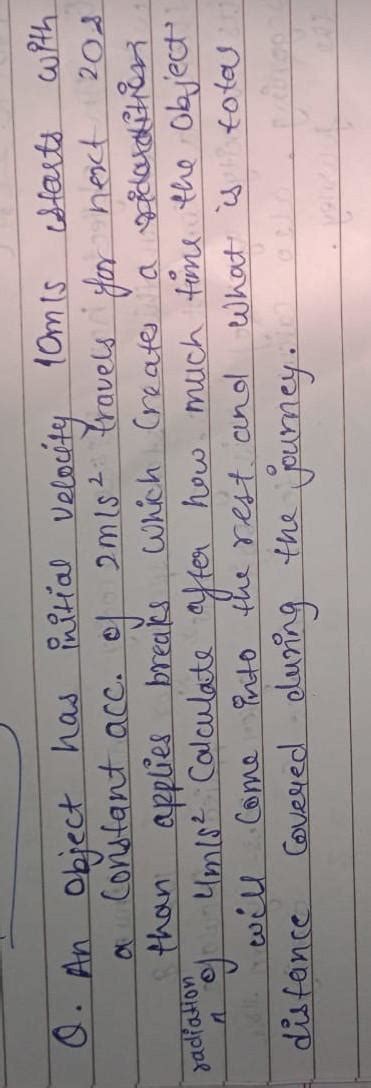 Q. An object has initial velocity 10m/s starts with
a constant acc. of 2m/s² travels for next 20s
than applies breaks which creates a
radiation
n of 4m/s² Calculate after how much time the object
will come into the rest and what is total
distance covered during the journey.